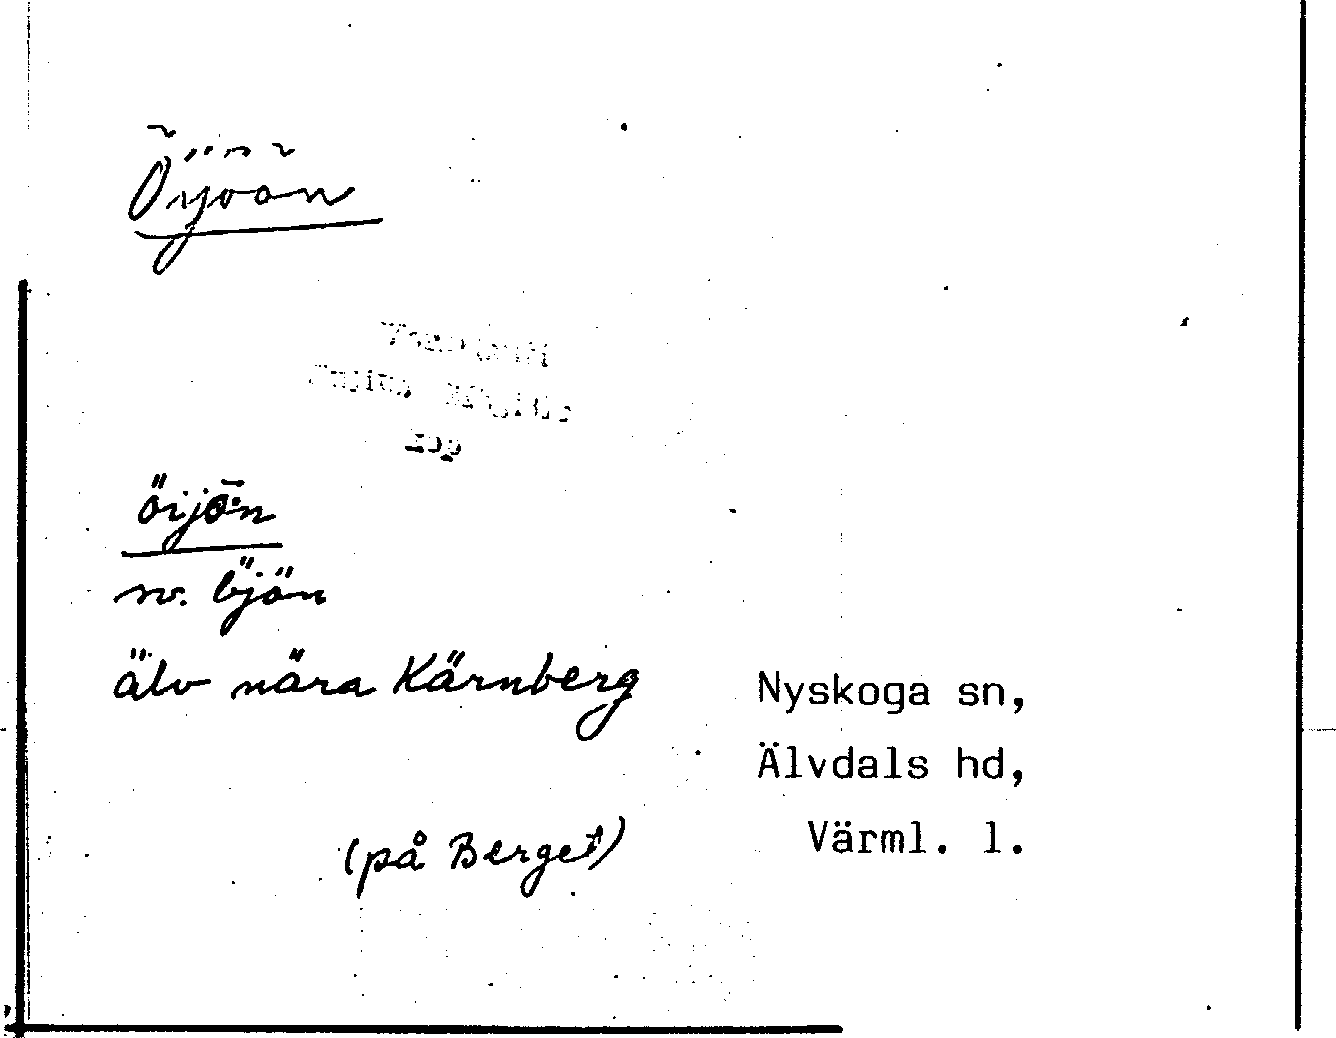 Öjöån
öijö:n
nv. öjön
älv nära Kärnberg
(på Berget)
Nyskoga sn,
Älvdals hd,
Värml. l.